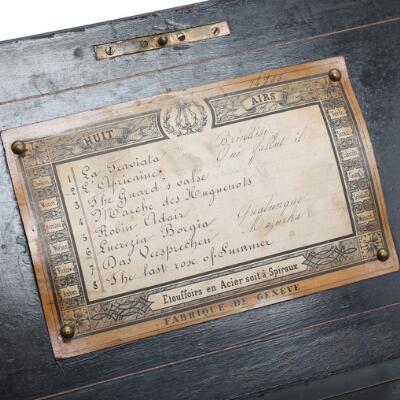 HUIT AIRS
1 La Traviata Brindisi
2 L'Africaine Que faut il
3 The Guard's valse
4 Marche des Huguenots
5 Robin Adair
6 Lucrezia Borgia Qualunque
7 Das Versprechen Mazurka
8 The last rose of Summer
Etouffoirs en Acier soit à Spiraux
FABRIQUE DE GENÈVE